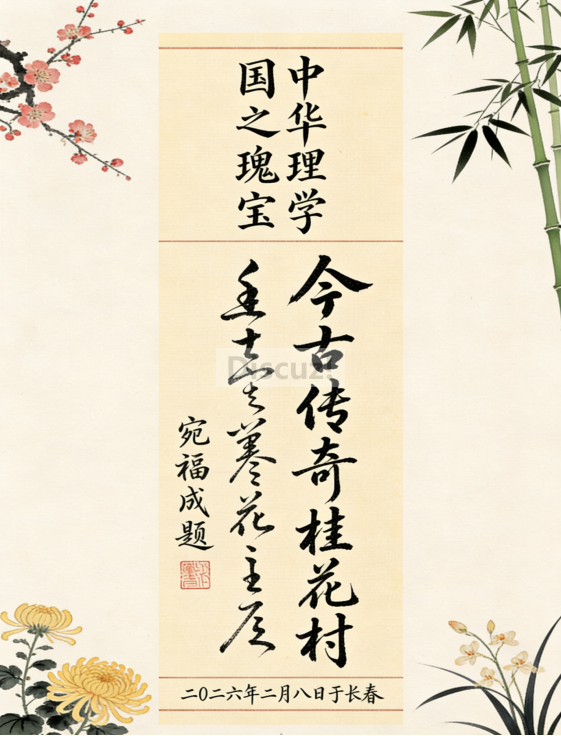 中华理学
国之瑰宝
今古传奇桂花村
花主
宛福成题
二〇二六年二月八日于长春
Discuz!